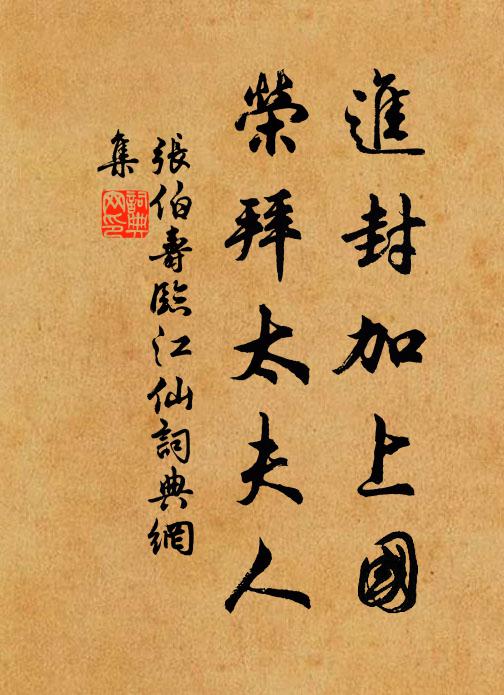 進封加上國
榮拜太夫人
張伯壽臨江仙詞典網
集
詞典
网印